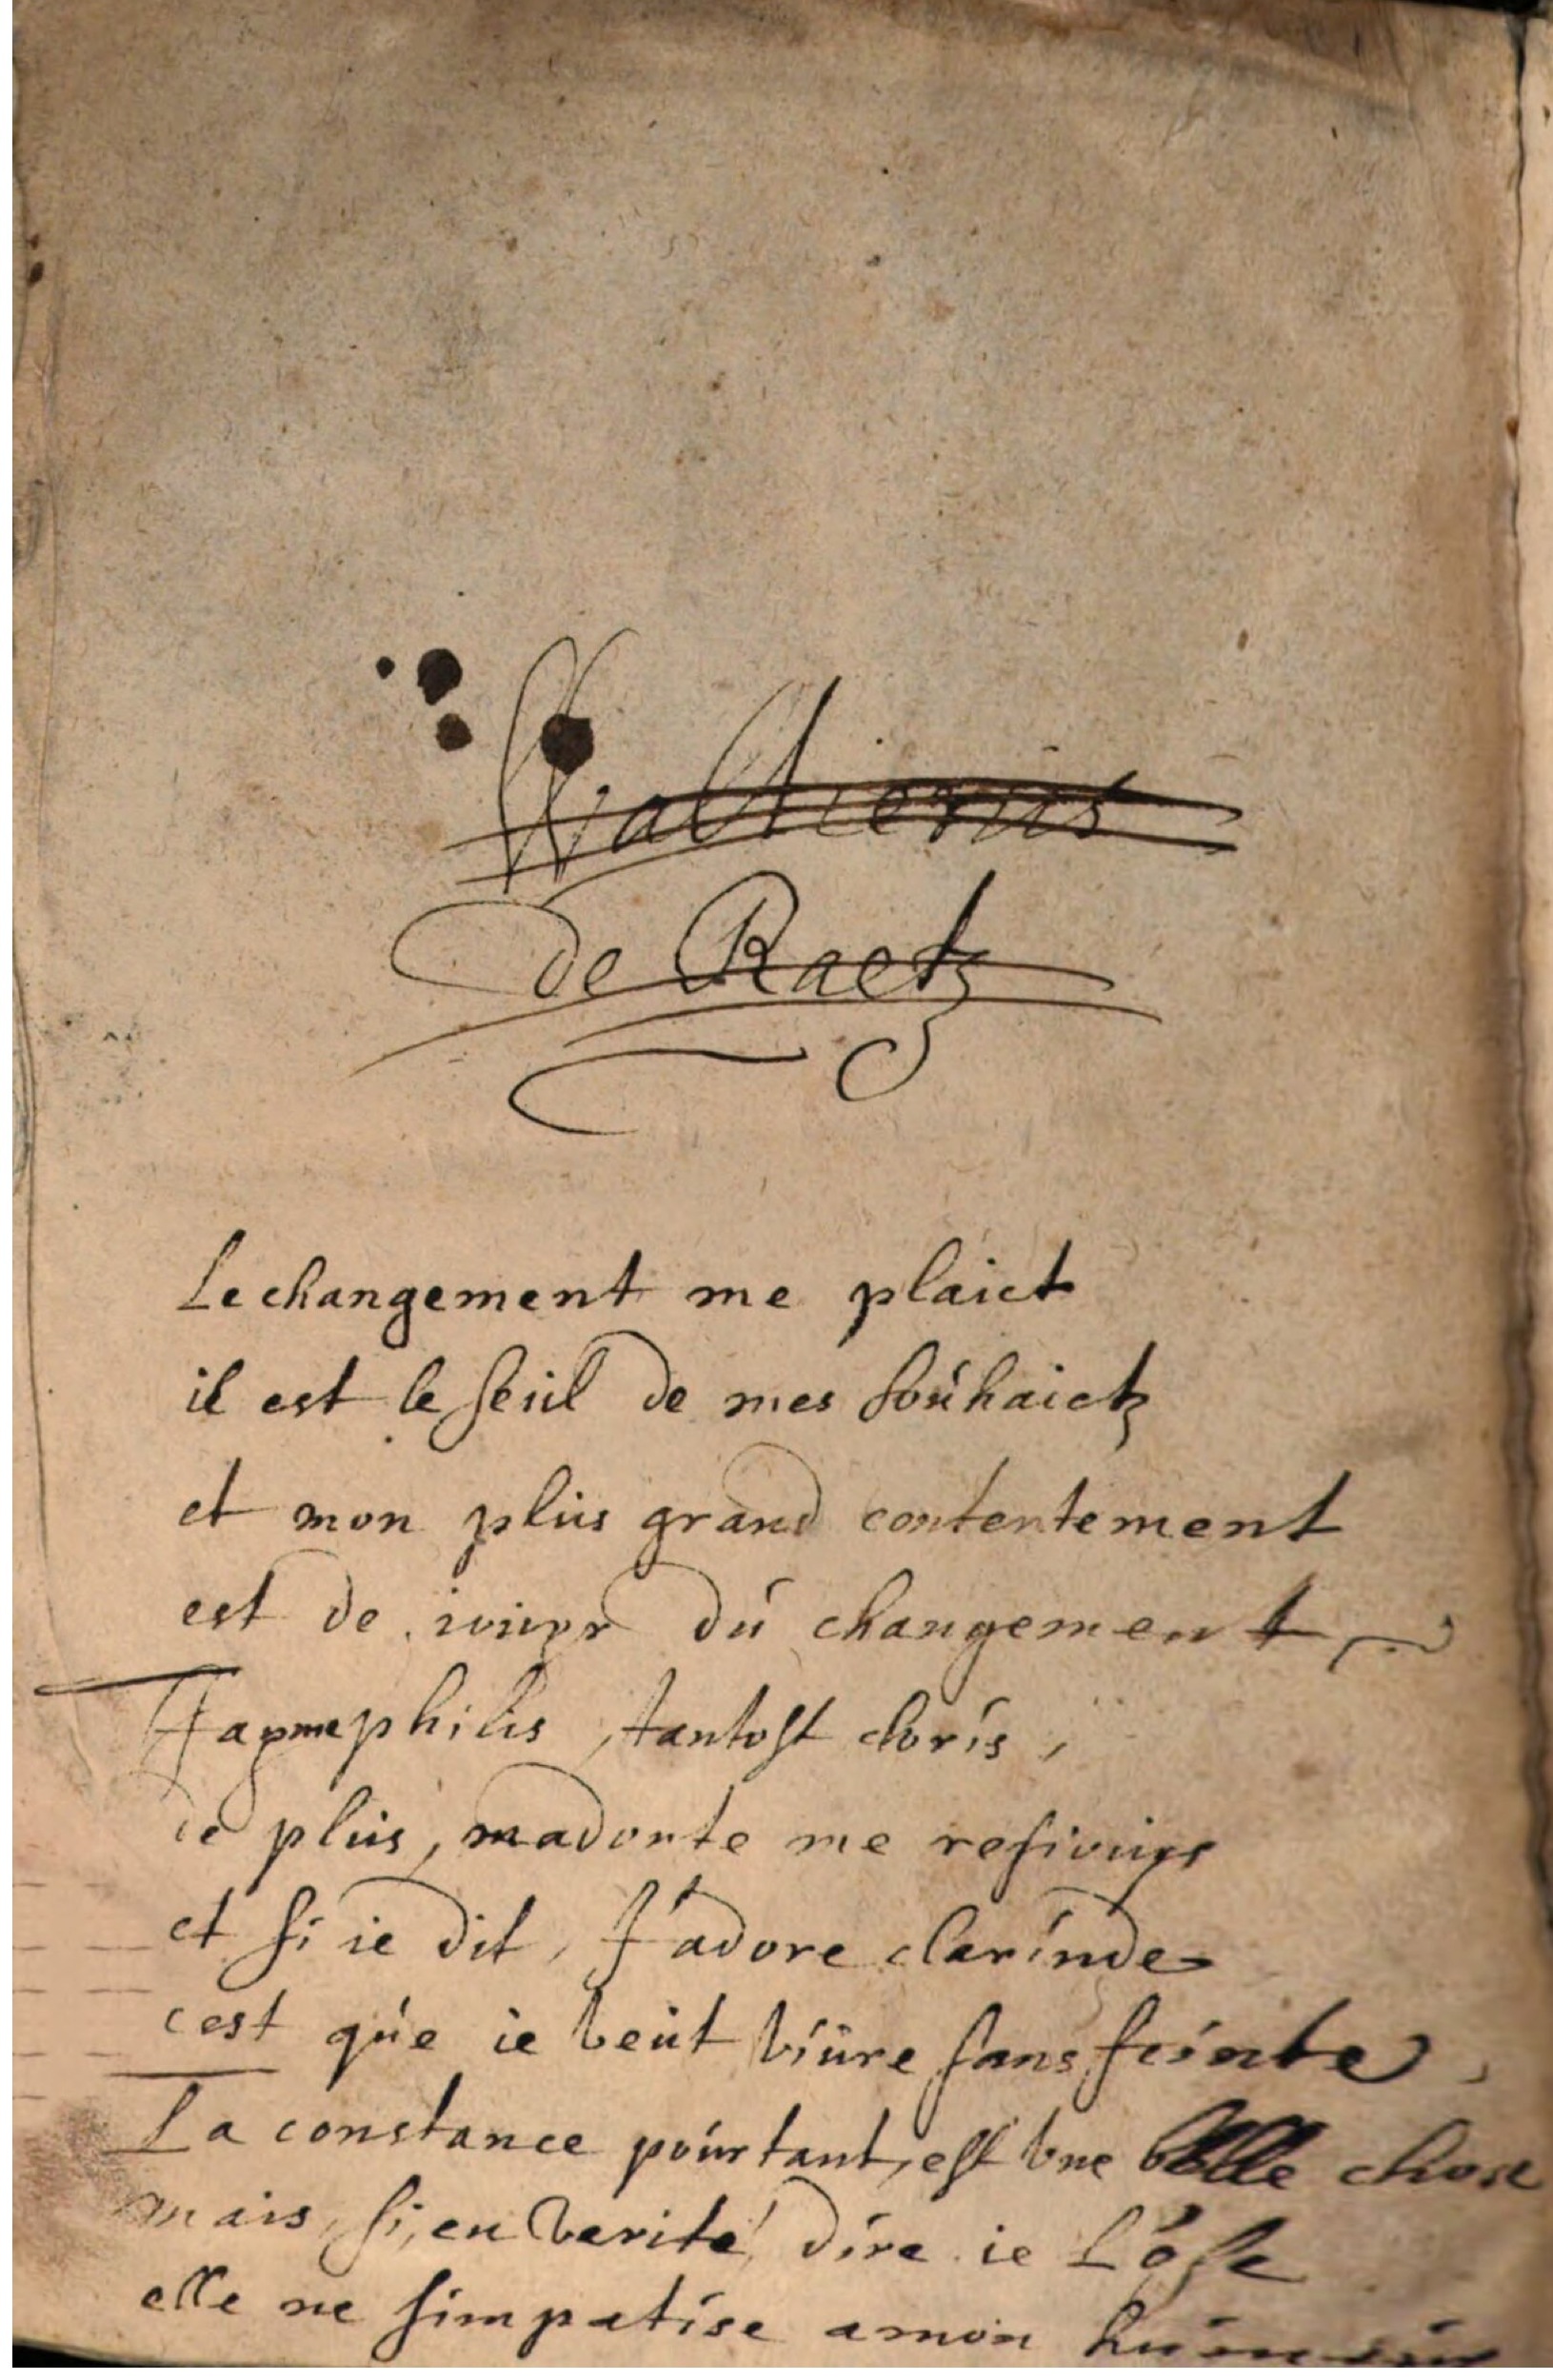 Waltierius
de Raetz
Le changement me plaict
il est le seul de mes souhaictz
et mon plus grand contentement
est de iouyr du changement
J'ayme philis, tantost cloris,
de plus, madonte me resiouys
et si ie dit, J'adore clarinde
c'est que ie veut viure sans feinte,
La constance pourtant, est vne belle chose
mais, si, en verité, dire ie L'ose
elle ne simpatise a mon humeur